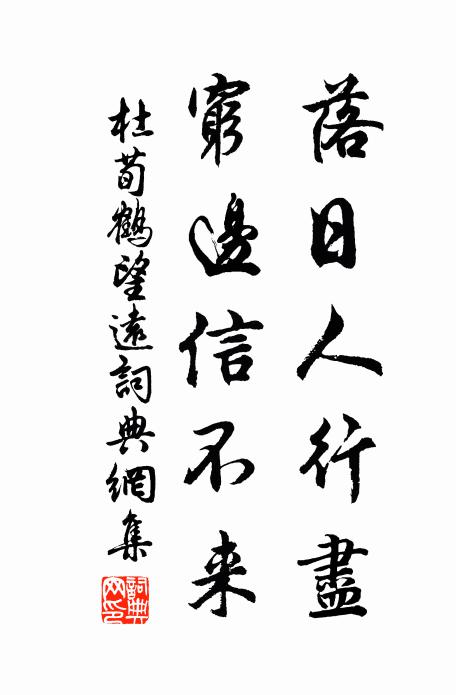 落日人行盡
窮邊信不来
杜荀鶴望遠詞典網集
詞典網印